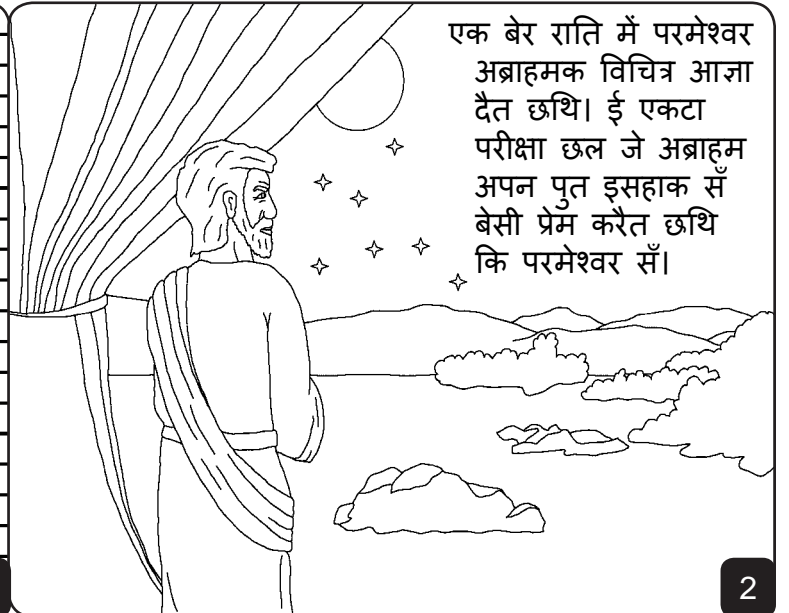 एक बेर राति में परमेश्वर
अब्राहमक विचित्र आज्ञा
दैत छथि। ई एकटा
परीक्षा छल जे अब्राहम
अपन पुत इसहाक सँ
बेसी प्रेम करैत छथि
कि परमेश्वर सँ।
2